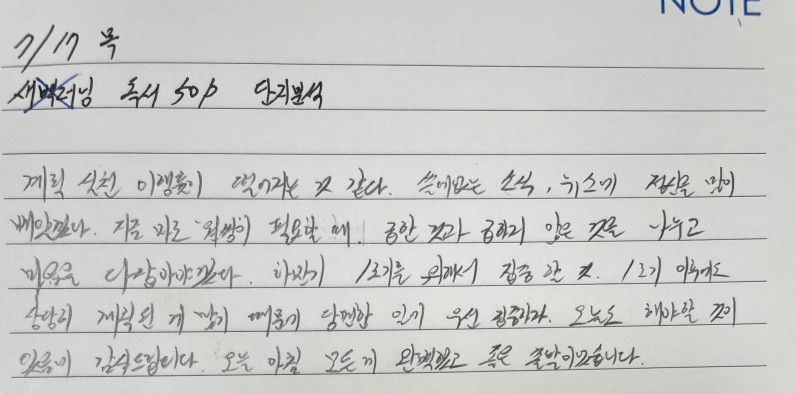 NOTE
7/17 목
새벽러닝 독서 50p 단지분석
계획 실천 이행률이 떨어지는 것 같다. 쓸데없는 소식, 뉴스에 정신을 많이
빼앗겼다. 지금 바로 '워싱'이 필요할 때. 급한 것과 급하지 않은 것을 나누고
마음을 다잡아야겠다. 하반기 1호기를 위해서 집중할 것. 1호기 이후에도
상당히 계획된 게 많기 때문에 당면한 일에 우선 집중하자. 오늘도 해야할 것이
있음에 감사드립니다. 오늘 아침 모든게 완벽했고 좋은 출발이었습니다.